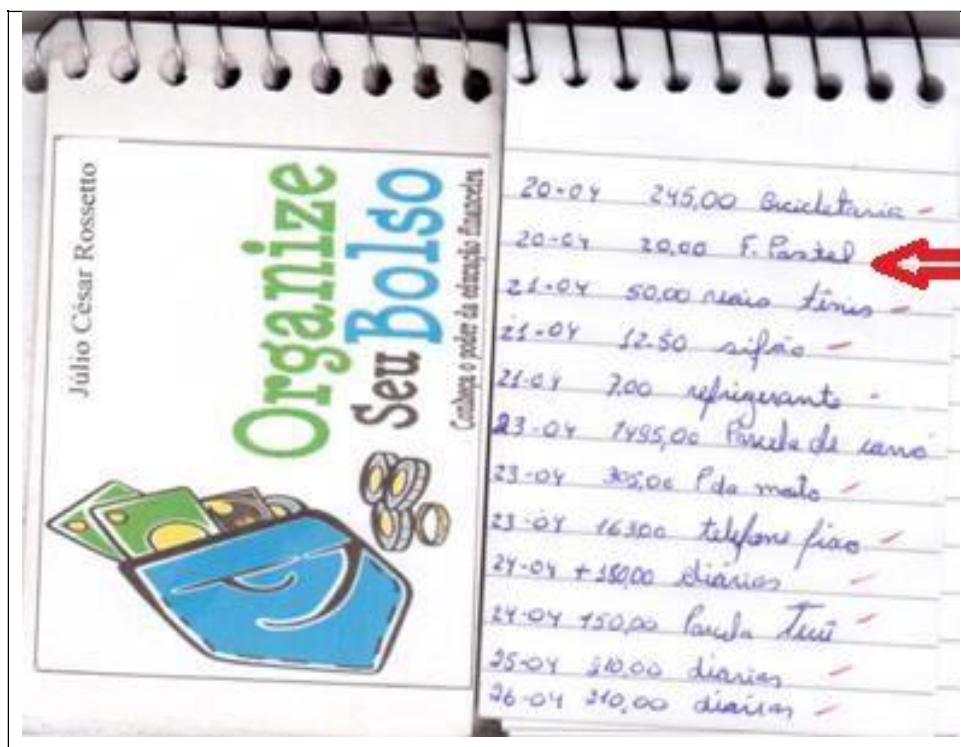 Júlio César Rossetto
Organize
Seu Bolso
Conheça o poder da educação financeira
20-04 245,00 Bicicletaria -
20-04 20,00 F. Pastel
21-04 50,00 reais tênis -
21-04 12.50 sifão -
21-04 7,00 refrigerante -
23-04 1495,00 Parcela de carro
23-04 305,00 P da moto -
23-04 163,00 telefone fixo -
24-04 + 150,00 diárias -
24-04 150,00 Parcela -
25-04 210,00 diárias -
26-04 210,00 diárias -